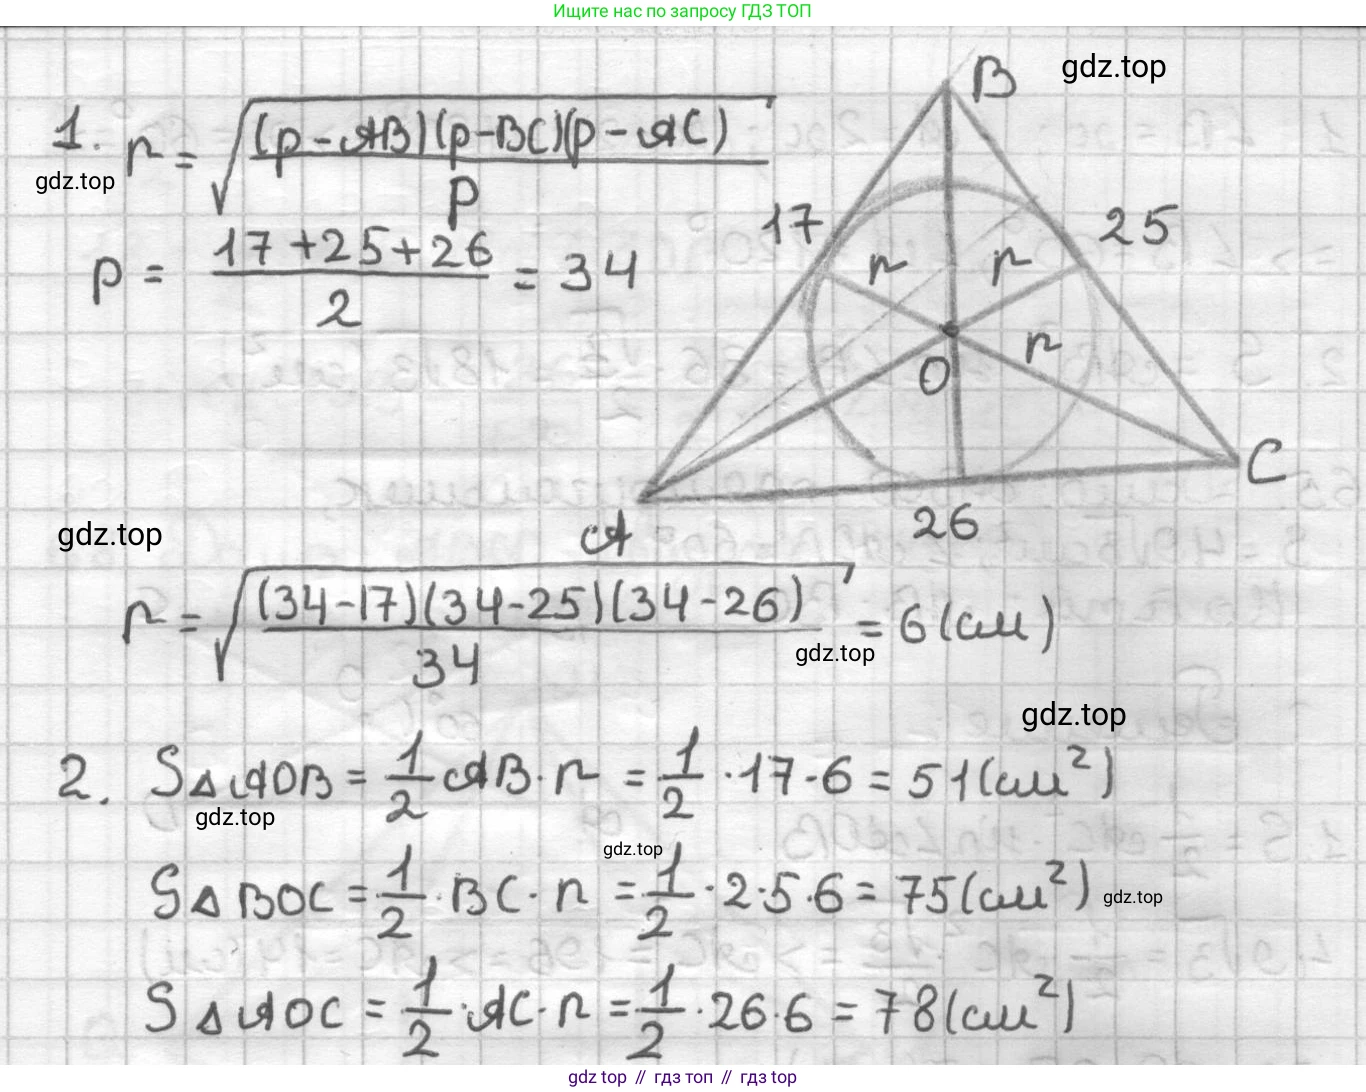 Ищите нас по запросу ГДЗ ТОП
B
gdz.top
1. r = √((p-AB)(p-BC)(p-AC) / p)
gdz.top
17
25
p = (17+25+26) / 2 = 34
r
r
r
O
C
gdz.top
A
26
r = √((34-17)(34-25)(34-26) / 34) = 6 (см)
gdz.top
gdz.top
2. S△AOB = 1/2 AB · r = 1/2 · 17 · 6 = 51 (см²)
gdz.top
gdz.top
S△BOC = 1/2 · BC · r = 1/2 · 2·5·6 = 75 (см²)
gdz.top
S△AOC = 1/2 · AC · r = 1/2 · 26·6 = 78 (см²)
gdz top // гдз топ // гдз top